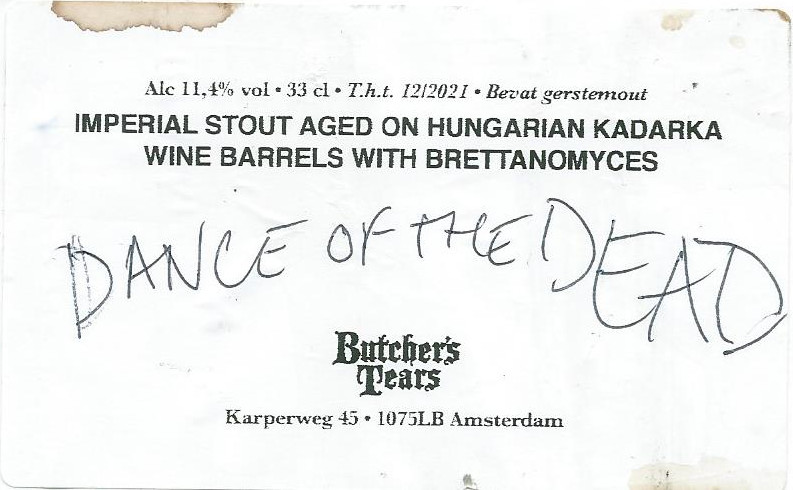 Alc 11,4% vol • 33 cl • T.h.t. 12/2021 • Bevat gerstemout
IMPERIAL STOUT AGED ON HUNGARIAN KADARKA
WINE BARRELS WITH BRETTANOMYCES
DANCE OF THE DEAD
Butcher's
Tears
Karperweg 45 • 1075LB Amsterdam